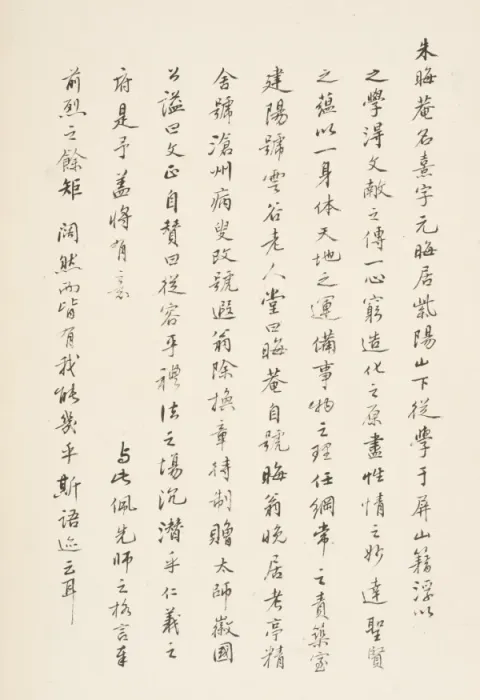 朱晦菴名熹字元晦居紫陽山下從學于屏山籍溪以
之學得文獻之傳一心窮造化之原盡性情之妙達聖賢
之蘊以一身体天地之運備事物之理任綱常之責築室
建陽號雲谷老人堂曰晦菴自號晦翁晚居考亭精
舍號滄州病叟改號遯翁除換章待制贈太師徽國
公謚曰文正自贊曰從容乎禮法之場沉潛乎仁義之
府是予盖將有意 与此佩先師之格言奉
前烈之餘矩 阔然而皆有我能幾乎斯語迩云耳